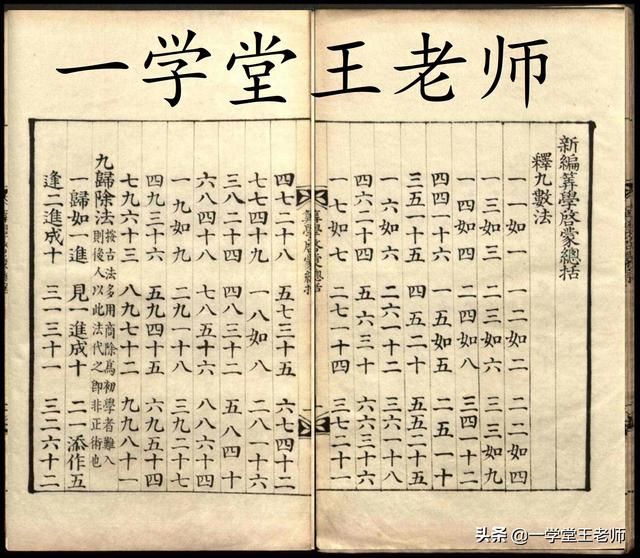 一学堂王老师
新編筭學啓蒙總括
釋九數法
一一如一 一二如二 二二如四
一三如三 二三如六 三三如九
一四如四 二四如八 三四一十二
四四一十六 一五如五 二五一十
三五一十五 四五二十 五五二十五
一六如六 二六一十二 三六一十八
四六二十四 五六三十 六六三十六
一七如七 二七一十四 三七二十一
筭學啓蒙總括
一
四七二十八 五七三十五 六七四十二
七七四十九 一八如八 二八一十六
三八二十四 四八三十二 五八四十
六八四十八 七八五十六 八八六十四
一九如九 二九一十八 三九二十七
四九三十六 五九四十五 六九五十四
七九六十三 八九七十二 九九八十一
九歸除法 按古法多用商除爲初學者難入
則後人以此法代之即非正術也
一歸如一進 見一進成十 二一添作五
逢二進成十 三一三十一 三二六十二
头条 @一学堂王老师